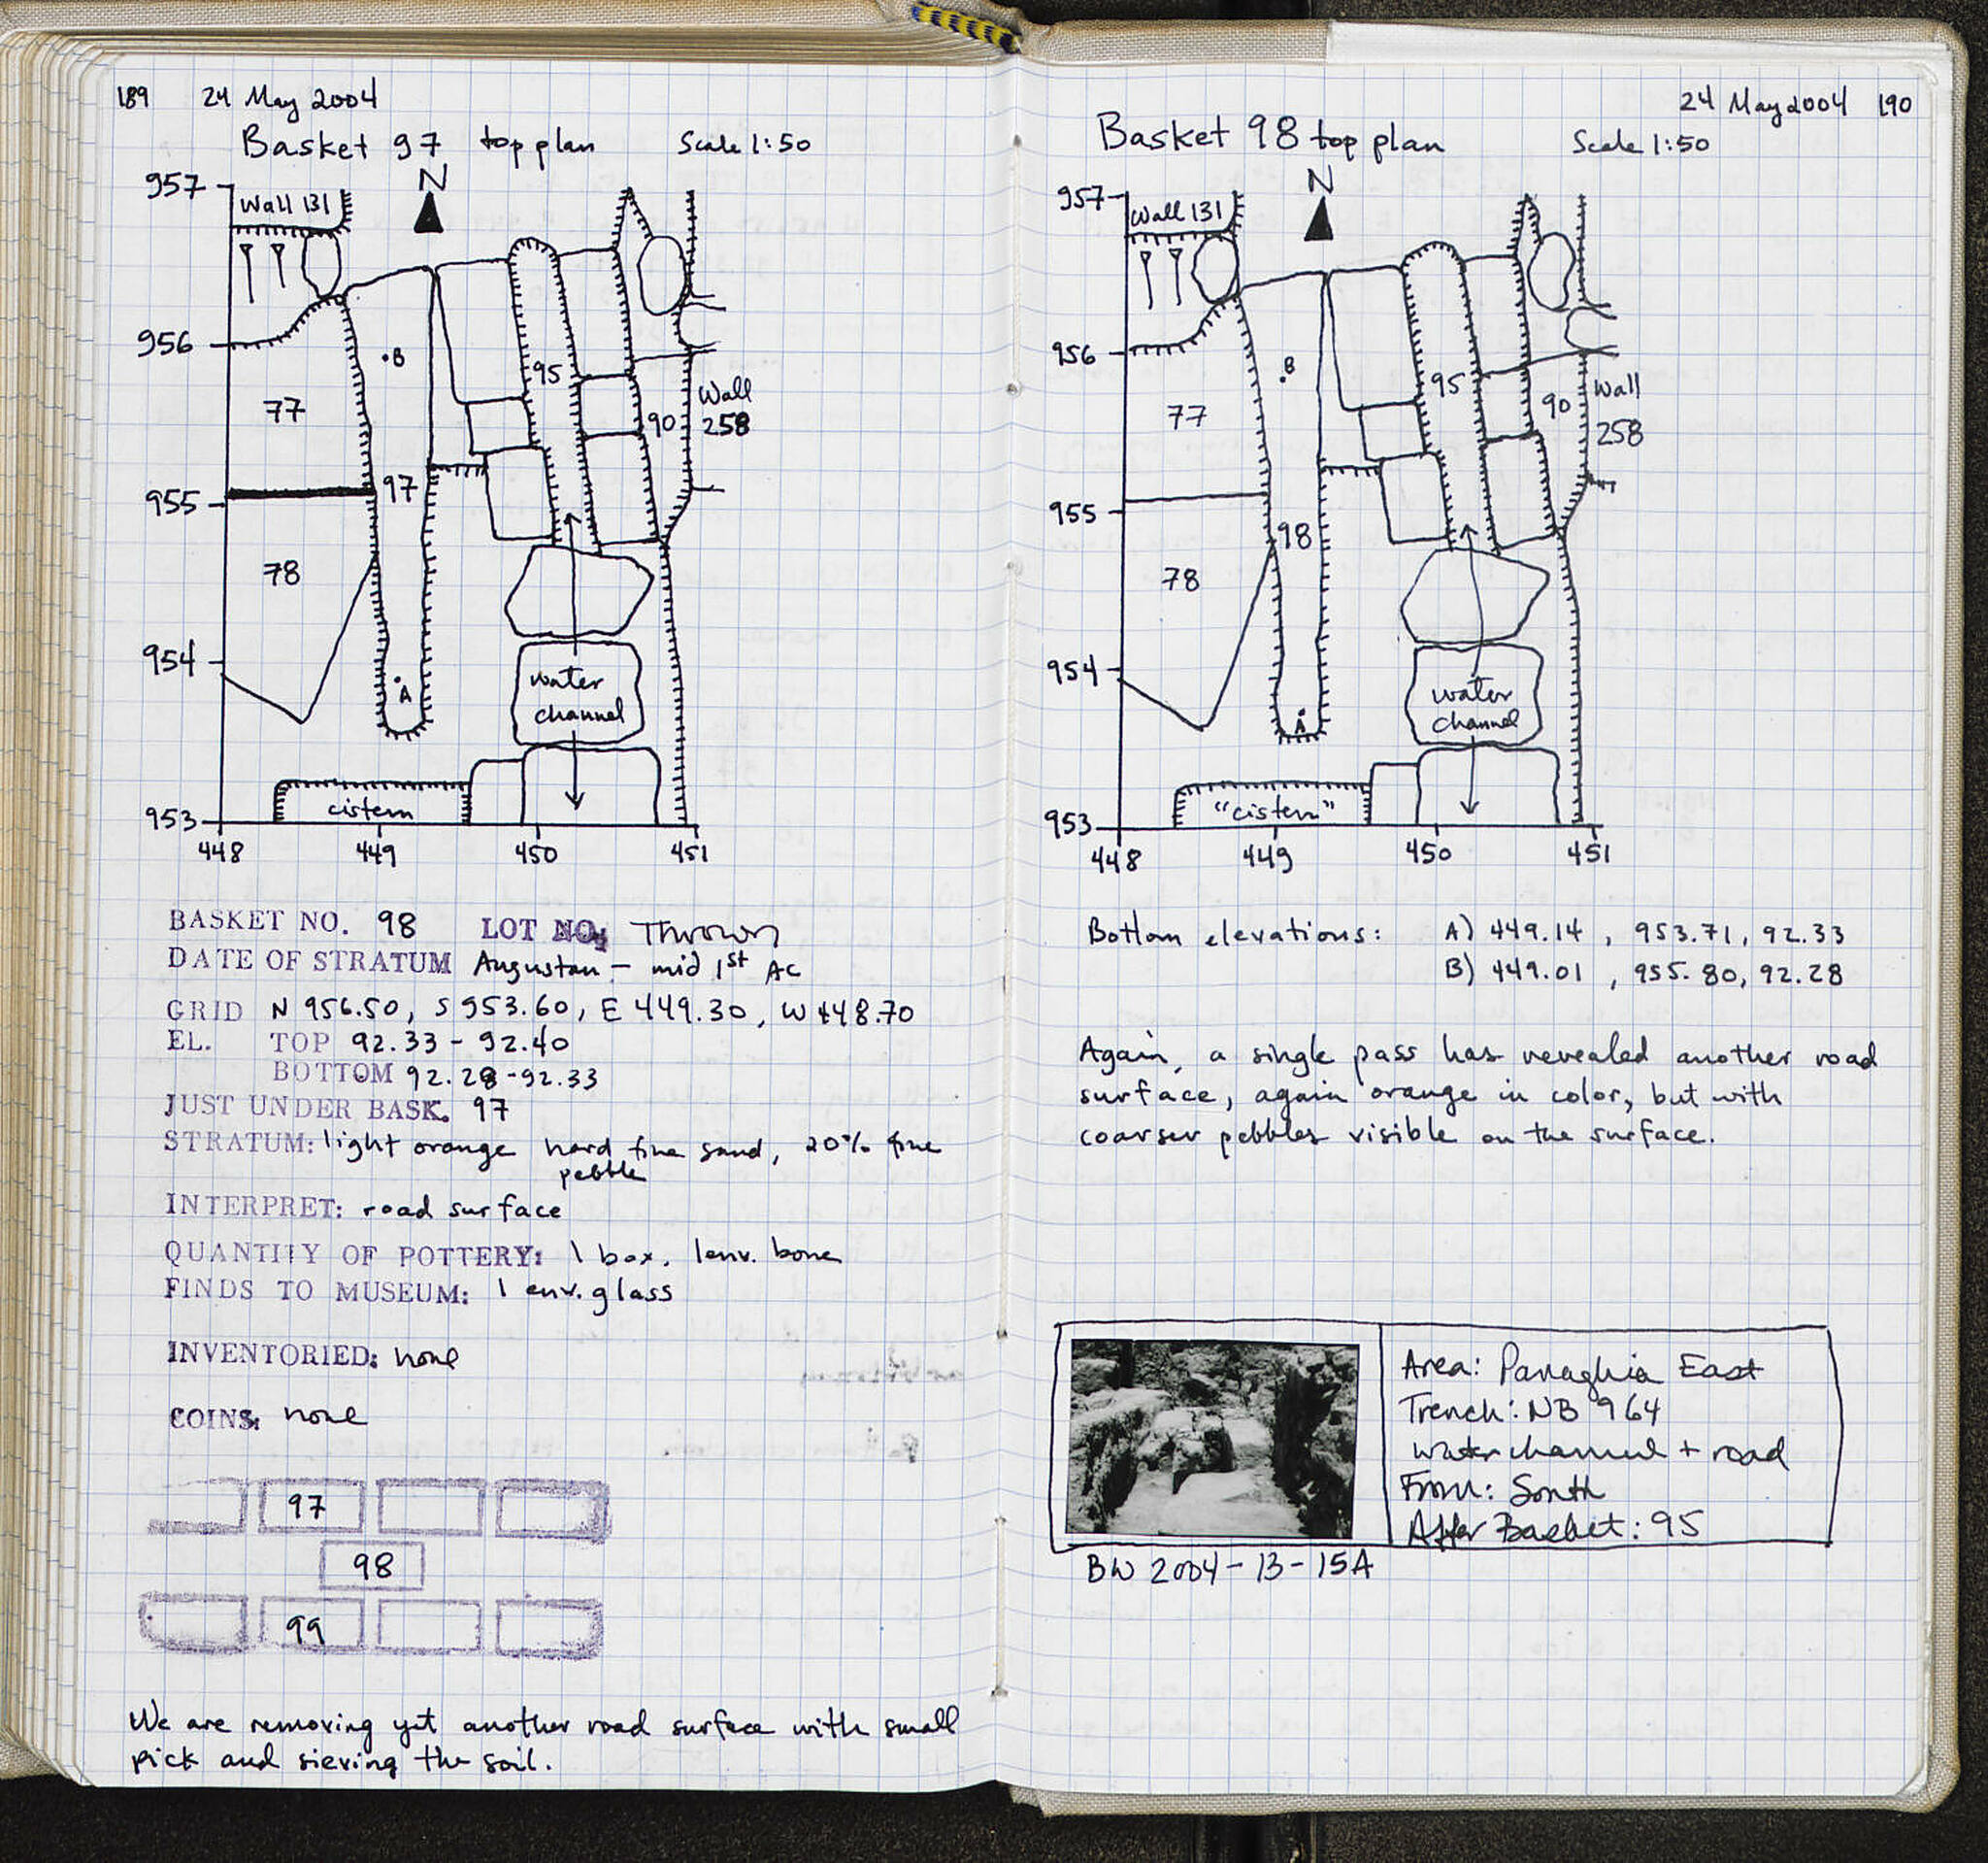 189 24 May 2004
Basket 97 top plan Scale 1:50
N
957
Wall 131
956
B
95
77
90
Wall
258
97
955
78
954
A
water
channel
cistern
953
448 449 450 451
BASKET NO. 98 LOT NO: Thrown
DATE OF STRATUM Augustan – mid 1st AC
GRID N 956.50, S 953.60, E 449.30, W 448.70
EL. TOP 92.33 - 92.40
BOTTOM 92.28 - 92.33
JUST UNDER BASK. 97
STRATUM: light orange hard fine sand, 20% fine
pebble
INTERPRET: road surface
QUANTITY OF POTTERY: 1 box. 1 env. bone
FINDS TO MUSEUM: 1 env. glass
INVENTORIED: none
COINS: none
97
98
99
We are removing yet another road surface with small
pick and sieving the soil.
24 May 2004 190
Basket 98 top plan Scale 1:50
N
957
Wall 131
956
B
95
90
Wall
258
77
955
98
78
954
A
water
channel
"cistern"
953
448 449 450 451
Bottom elevations: A) 449.14, 953.71, 92.33
B) 449.01, 955.80, 92.28
Again, a single pass has revealed another road
surface, again orange in color, but with
coarser pebbles visible on the surface.
Area: Panaghia East
Trench: NB 964
water channel + road
From: South
After Basket: 95
BW 2004-13-15A